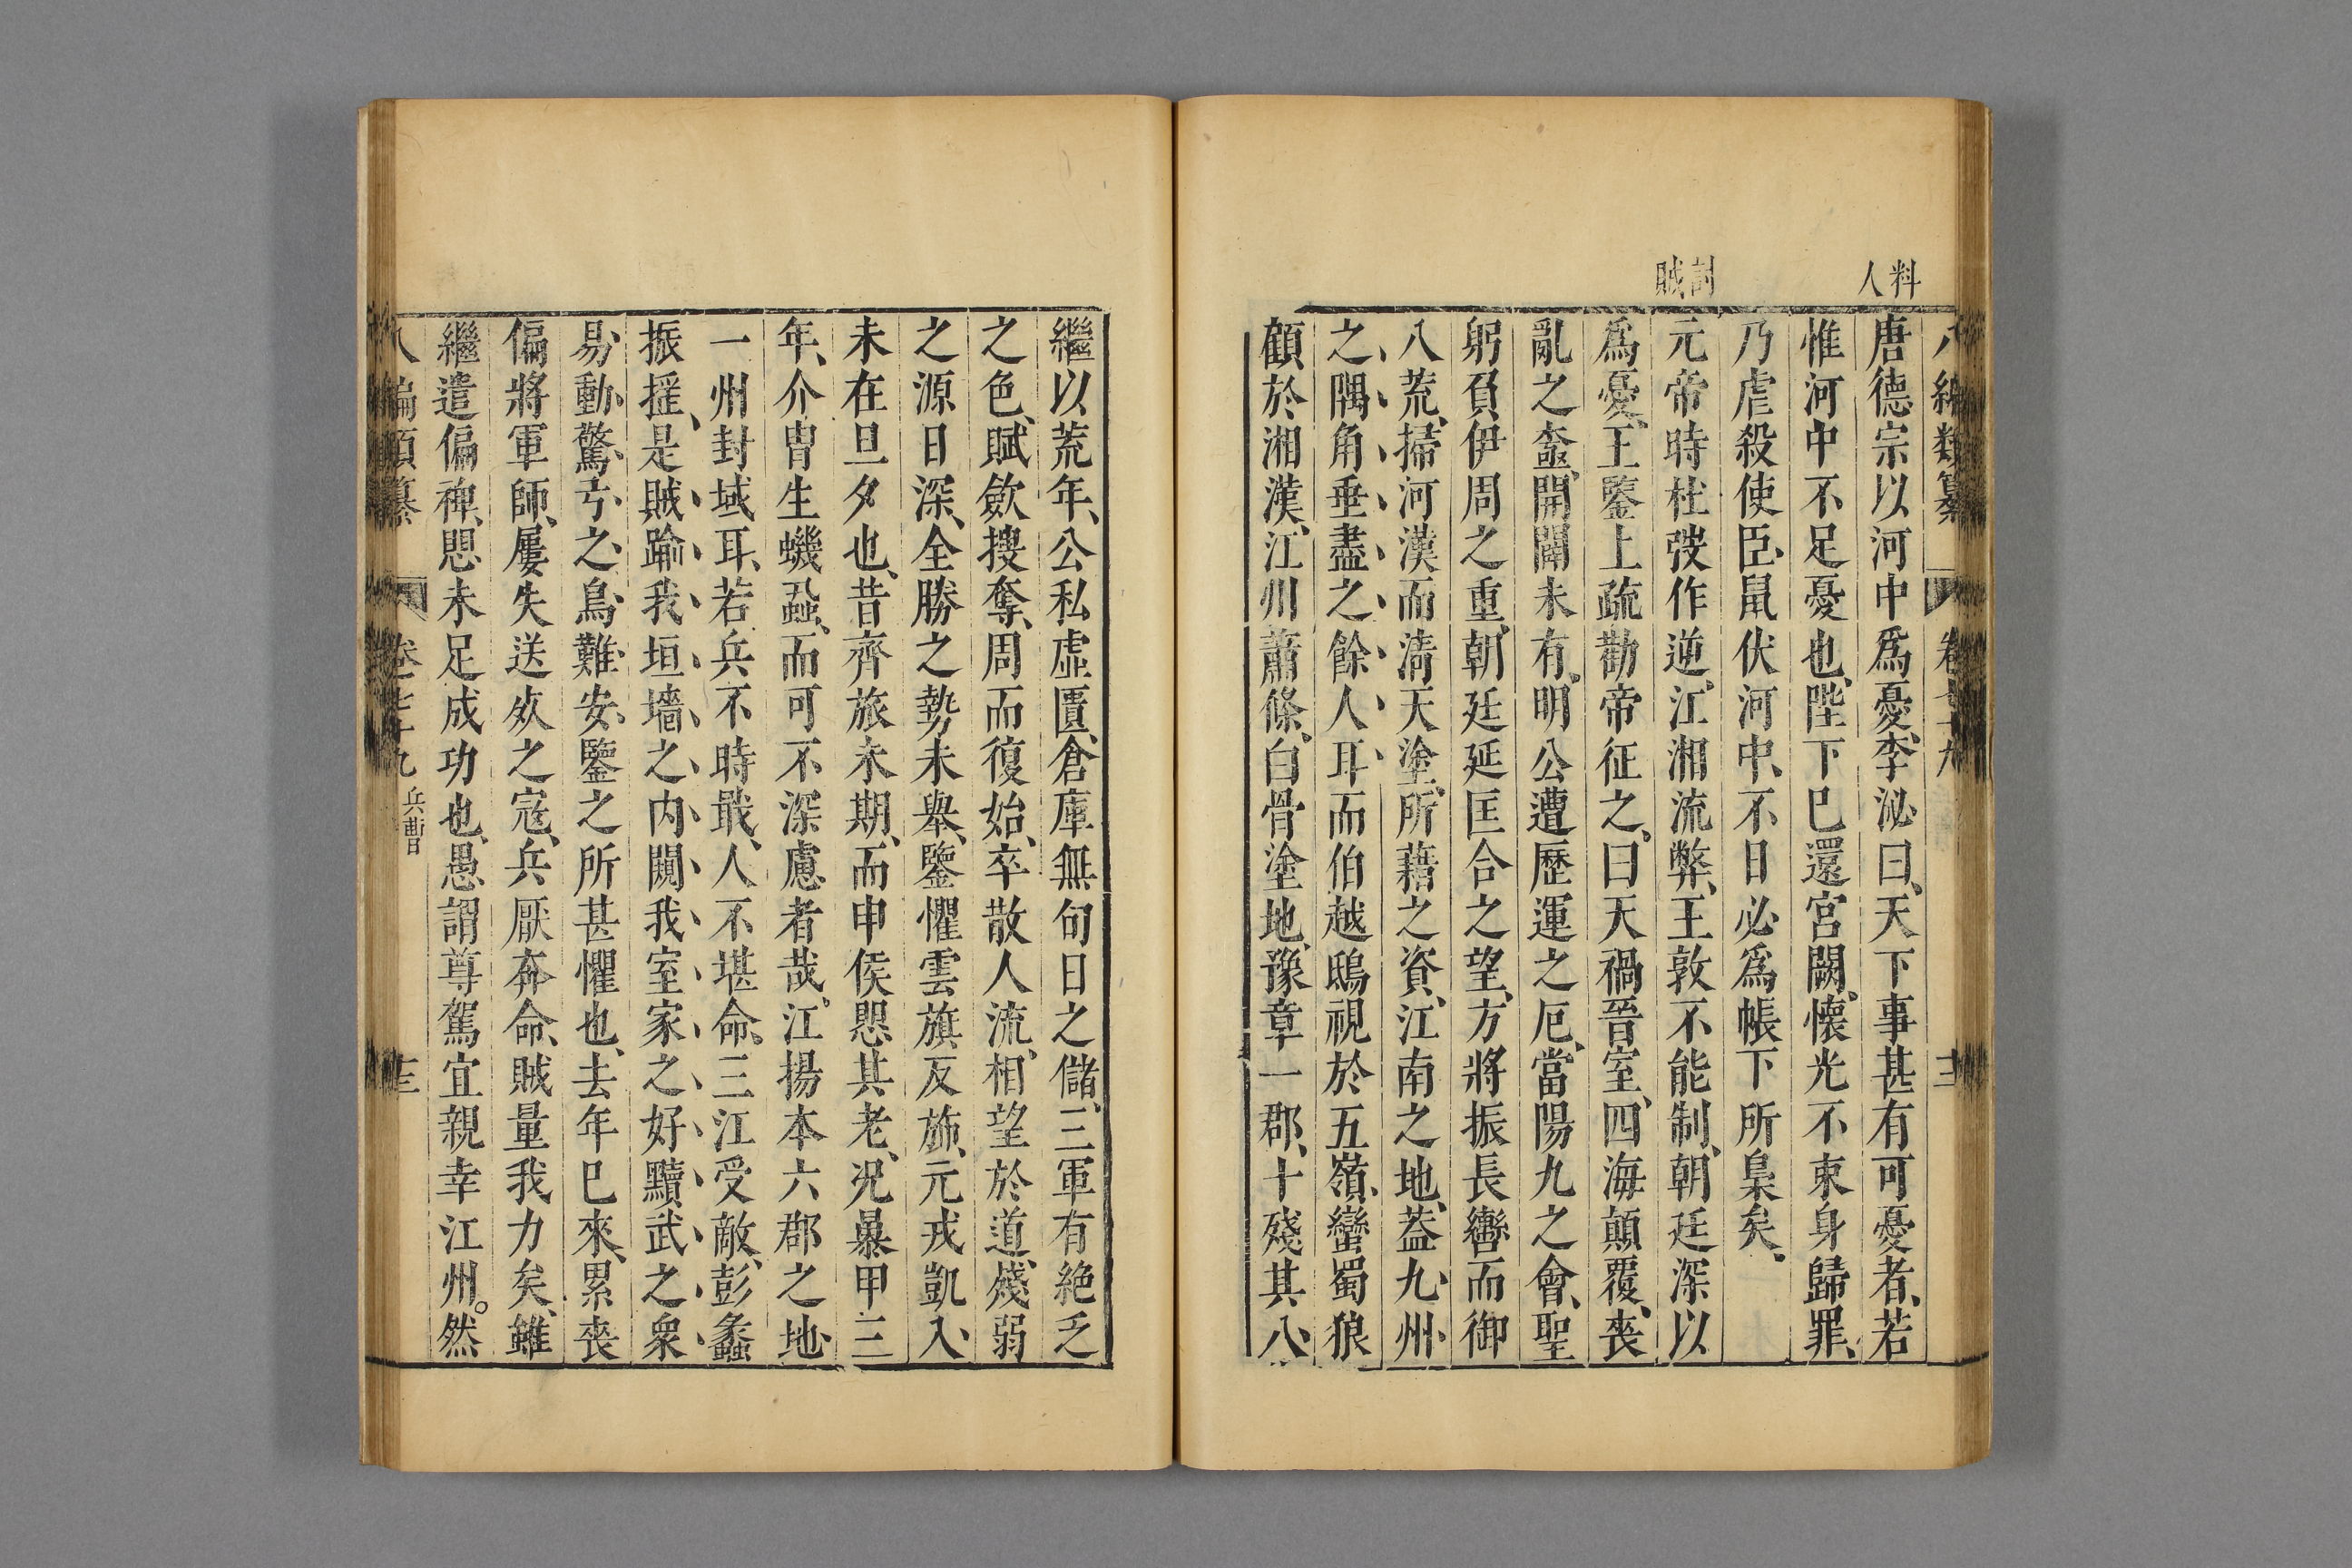 料人
討賊
八編類纂 卷七十九 十三
唐德宗以河中爲憂、李泌曰、天下事甚有可憂者、若
惟河中不足憂也、陛下巳還宮闕、懷光不束身歸罪、
乃虐殺使臣、鼠伏河中、不日必爲帳下所梟矣、
元帝時杜弢作逆、江湘流弊、王敦不能制、朝廷深以
爲憂、王鑒上疏勸帝征之、曰天禍晉室、四海顛覆、喪
亂之極、開闢未有、明公遭歷運之厄、當陽九之會、聖
躬負伊周之重、朝廷延匡合之望、方將振長轡而御
八荒、掃河漢而淸天塗、所藉之資、江南之地、葢九州
之隅角垂盡之餘人耳、而伯越鴟視於五嶺、蠻蜀狼
顧於湘漢、江州蕭條、白骨塗地、豫章一郡、十殘其八、
繼以荒年、公私虛匱、倉庫無旬日之儲、三軍有絕乏
之色、賦斂搜奪、周而復始、卒散人流、相望於道、殘弱
之源日深、全勝之勢未舉、鑒懼雲旗反斾、元戎凱入、
未在旦夕也、昔齊旅未期、而申侯懼其老、况暴甲三
年、介冑生蟣蝨、而可不深慮者哉、江揚本六郡之地、
一州封域耳、若兵不時戢、人不堪命、三江受敵、彭蠡
振搖、是賊踰我垣墻之內、闚我室家之好、黷武之衆
易動、驚弓之鳥難安、鑒之所甚懼也、去年巳來、累喪
偏將軍師、屢失送死之寇、兵厭奔命、賊量我力矣、雖
繼遣偏裨、懼未足成功也、愚謂尊駕宜親幸江州。然
八編類纂 卷七十九 兵曹 十三